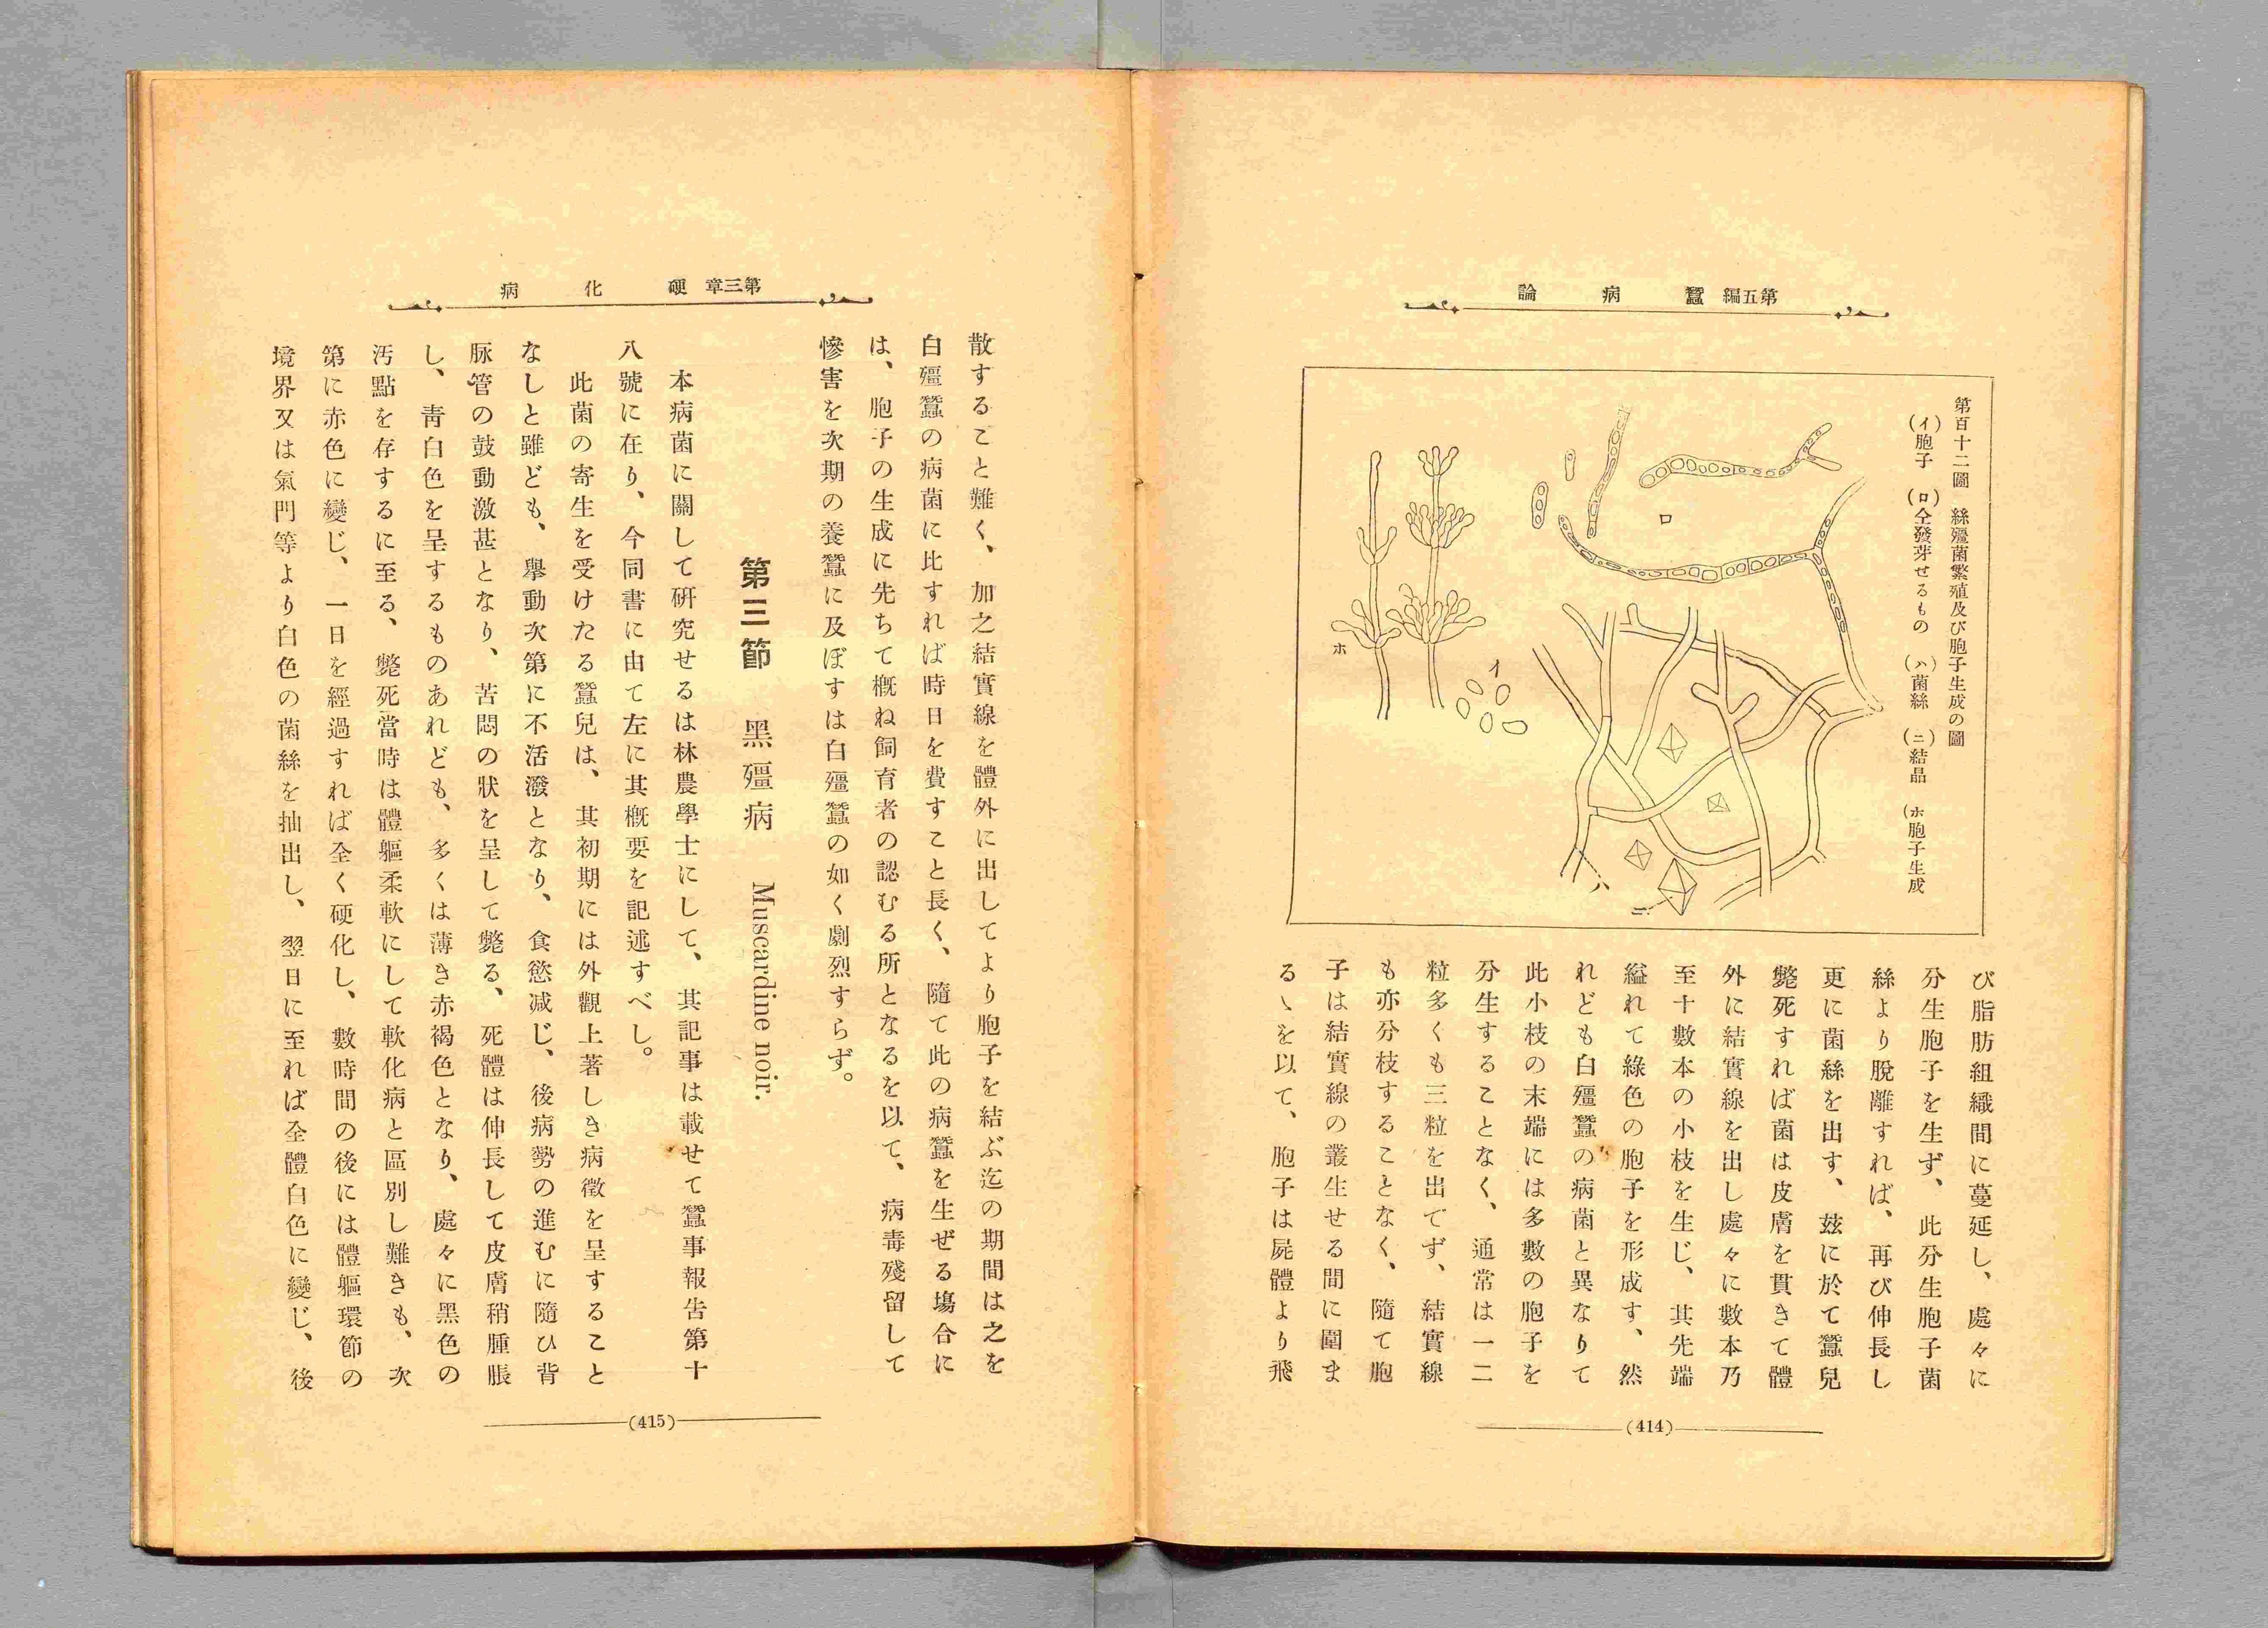 第五編 蠶病論
第百十二圖 絲殭菌繁殖及び胞子生成の圖
(イ)胞子 (ロ)仝發芽せるもの (ハ)菌絲 (ニ)結晶 (ホ)胞子生成
ロ
イ
ホ
ハ
ニ
び脂肪組織間に蔓延し、處々に
分生胞子を生ず、此分生胞子菌
絲より脫離すれば、再び伸長し
更に菌絲を出す、玆に於て蠶兒
斃死すれば菌は皮膚を貫きて體
外に結實線を出し處々に數本乃
至十數本の小枝を生じ、其先端
縊れて綠色の胞子を形成す、然
れども白殭蠶の病菌と異なりて
此小枝の末端には多數の胞子を
分生することなく、通常は一二
粒多くも三粒を出でず、結實線
も亦分枝することなく、隨て胞
子は結實線の叢生せる間に圍ま
るゝを以て、胞子は屍體より飛
(414)
第三章 硬化病
散すること難く、加之結實線を體外に出してより胞子を結ぶ迄の期間は之を
白殭蠶の病菌に比すれば時日を費すこと長く、隨て此の病蠶を生ぜる塲合に
は、胞子の生成に先ちて槪ね飼育者の認むる所となるを以て、病毒殘留して
慘害を次期の養蠶に及ぼすは白殭蠶の如く劇烈すらず。
第三節 黑殭病 Muscardine noir.
本病菌に關して硏究せるは林農學士にして、其記事は載せて蠶事報告第十
八號に在り、今同書に由て左に其槪要を記述すべし。
此菌の寄生を受けたる蠶兒は、其初期には外觀上著しき病徵を呈すること
なしと雖ども、擧動次第に不活潑となり、食慾減じ、後病勢の進むに隨ひ背
脉管の鼓動激甚となり、苦悶の狀を呈して斃る、死體は伸長して皮膚稍腫脹
し、靑白色を呈するものあれども、多くは薄き赤褐色となり、處々に黑色の
汚點を存するに至る、斃死當時は體軀柔軟にして軟化病と區別し難きも、次
第に赤色に變じ、一日を經過すれば全く硬化し、數時間の後には體軀環節の
境界又は氣門等より白色の菌絲を抽出し、翌日に至れば全體白色に變じ、後
(415)